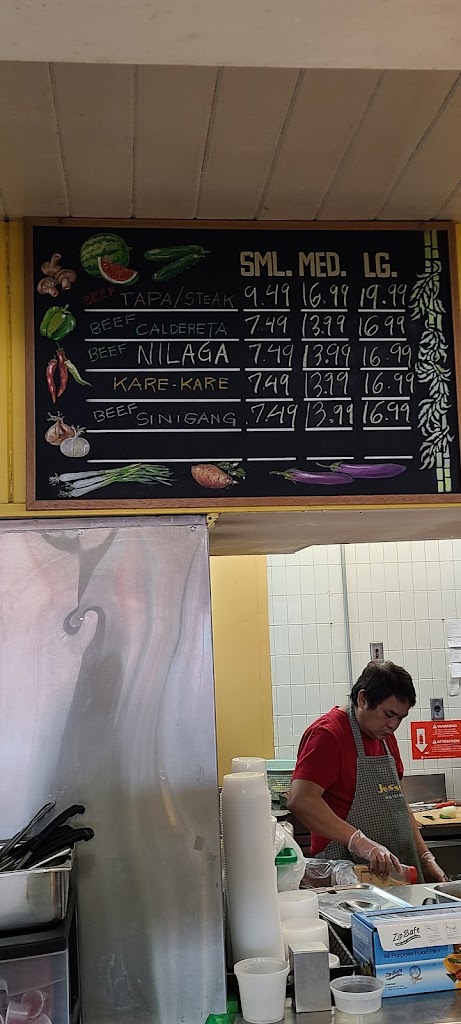 SML. MED. LG.
BEEF TAPA/STEAK 9.49 16.99 19.99
BEEF CALDERETA 7.49 13.99 16.99
BEEF NILAGA 7.49 13.99 16.99
KARE-KARE 7.49 13.99 16.99
BEEF SINIGANG 7.49 13.99 16.99
WARNING
ATTENTION
ZipSafe
All Purpose Food Film
ZipSafe